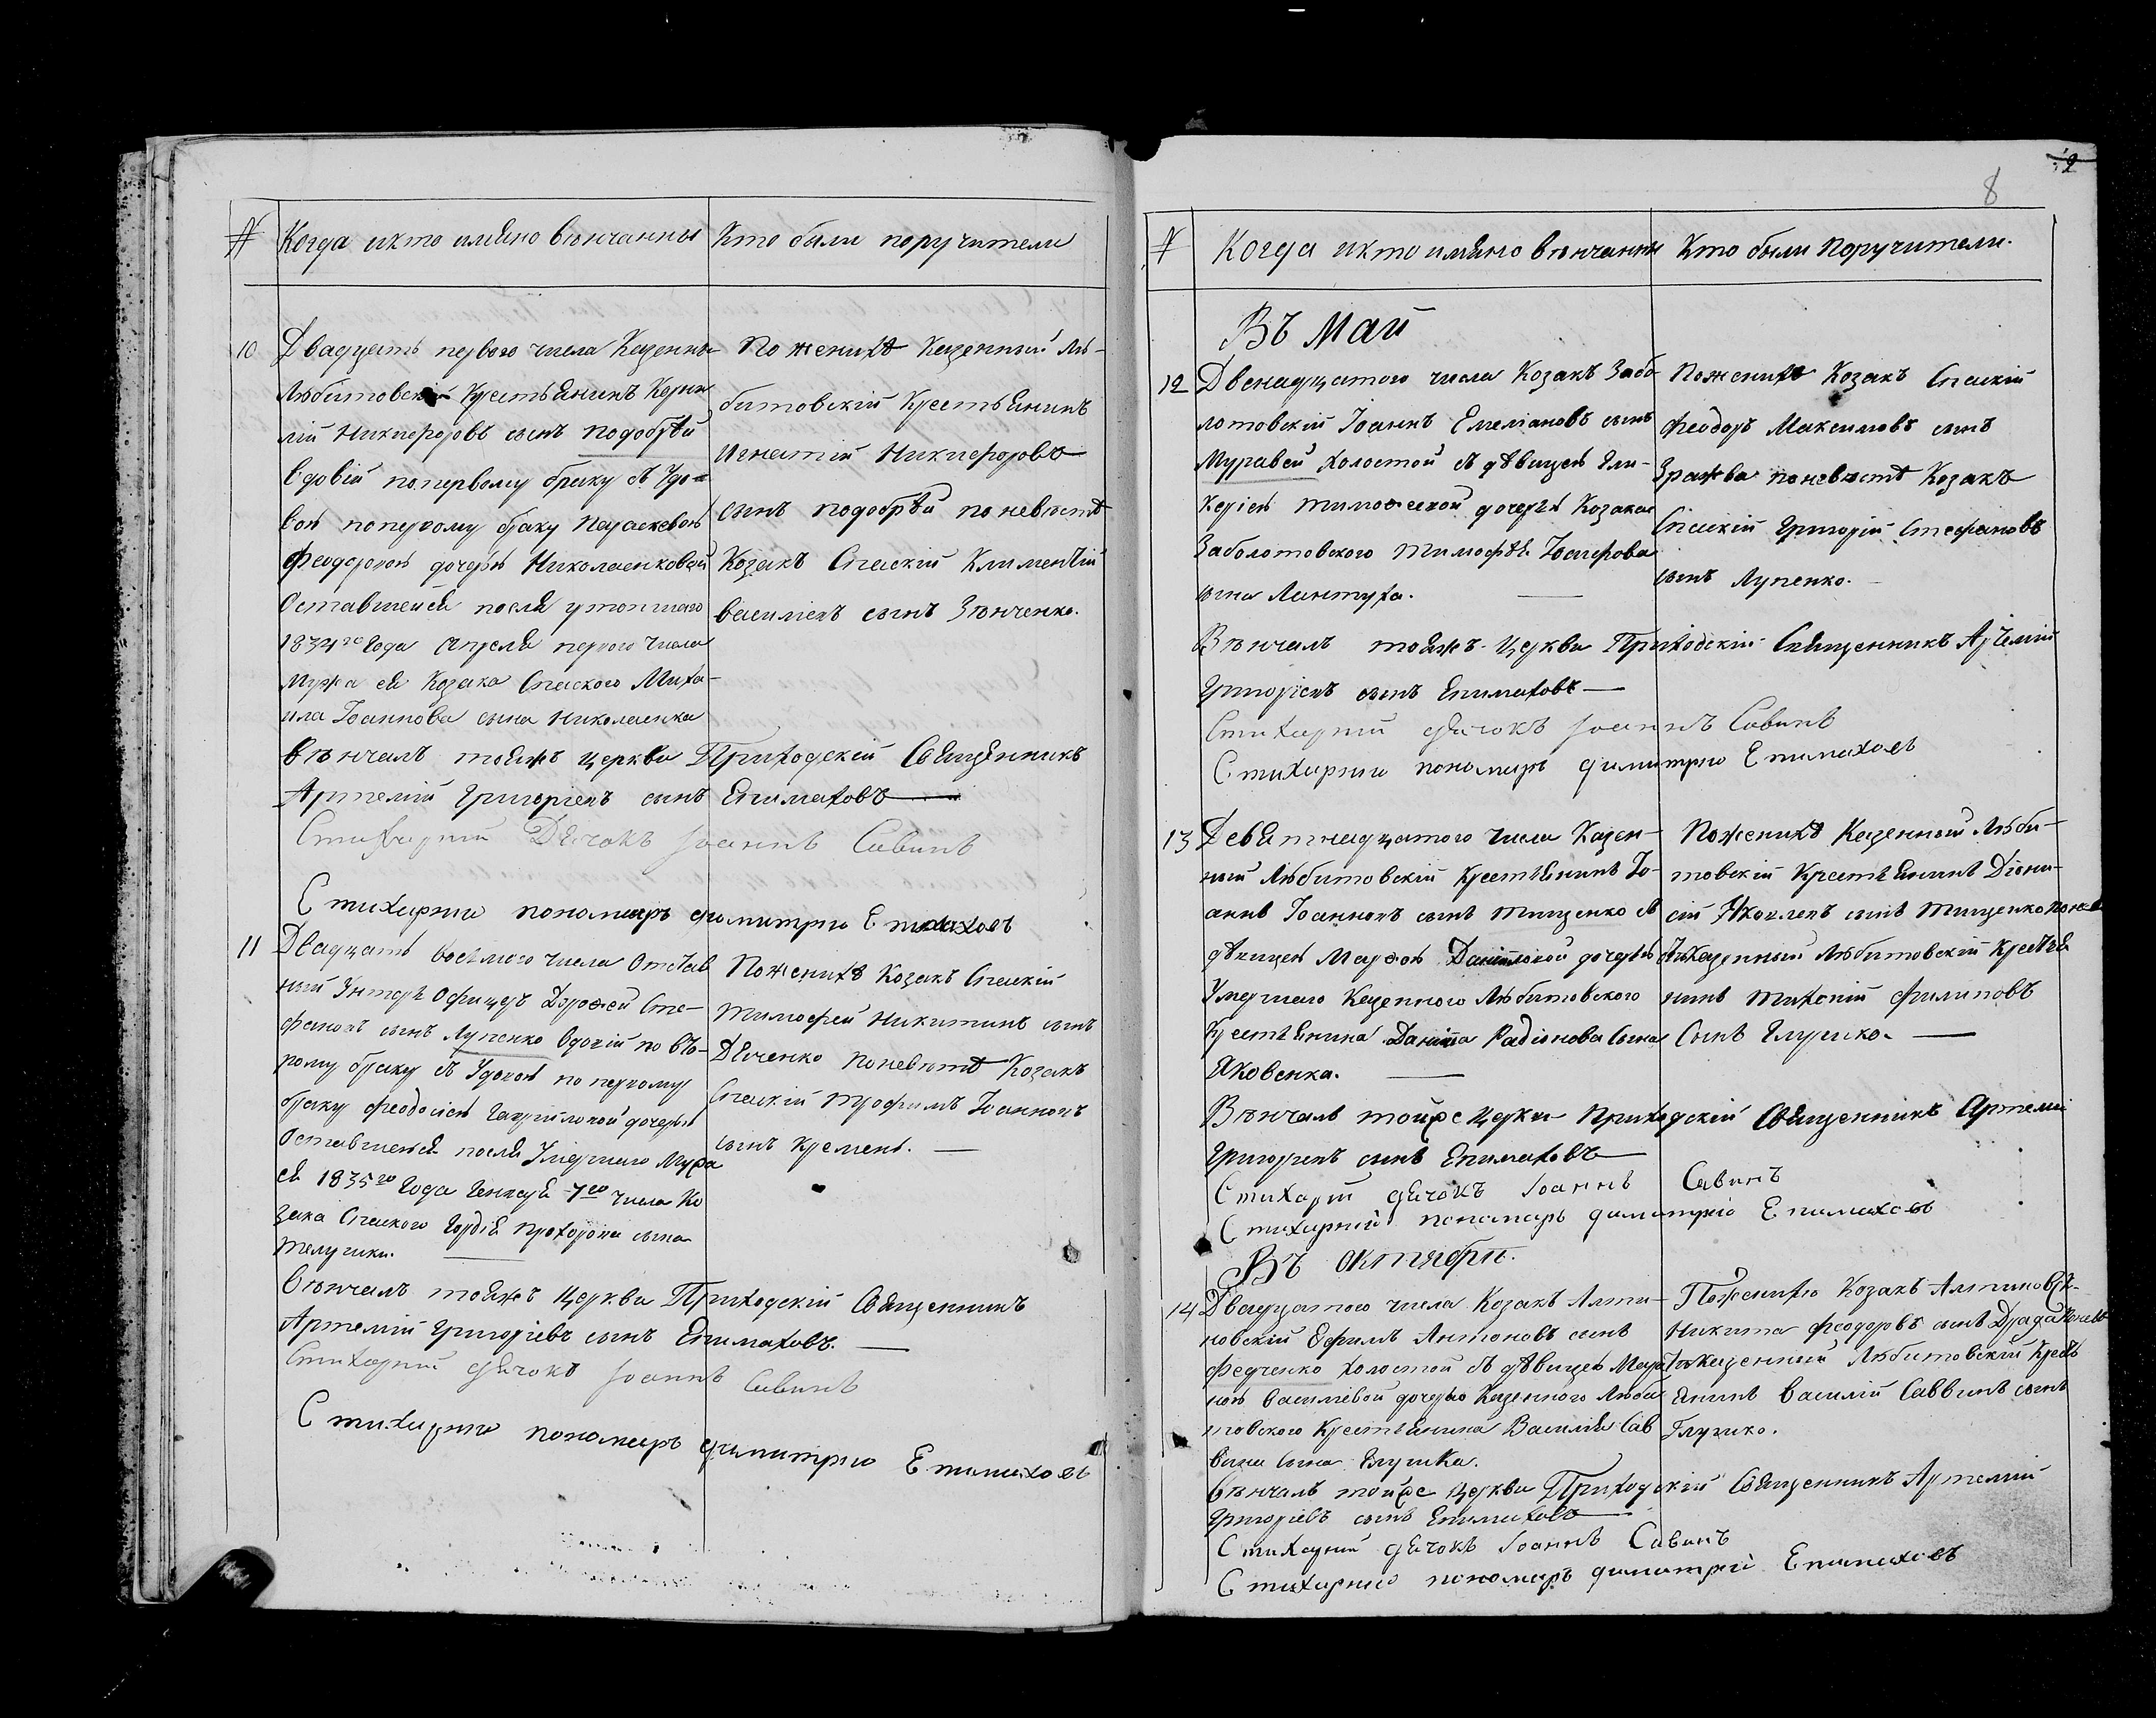 № Когда икто имяно вѣнчанны
Кто были поручители
10 Двадцать первого числа Казенны
Любитовскій Крестьянинъ Корни
лій Никифоровъ сынъ Подобрѣй
вдовій поперьвому браку съ Удо
вою поперьвому браку Параскевою
Феодоровою дочерью Николаенковой
Оставшейся послѣ утопшаго
1834го Года Апреля первого числа
мужа ея Козака Спаского Миха-
ила Іоаннова сына Николаенка
По женихѣ Казенный Лю-
битовскій Крестьянинъ
Игнатій Никифоровъ
сынъ Подобрѣй по невѣстѣ
Козакъ Спаскій Климентій
Василіевъ сынъ Зѣнченко.
Вѣнчалъ тояжъ Церкви Приходскій Священникъ
Артемій Григоріевъ сынъ Епимаховъ
Стихарный Дячокъ Іоаннъ Савинъ
Стихарный пономарь Димитрій Епимаховъ
11 Двадцать восьмого числа Отстав
ный Унтеръ Офицеръ Дорофей Сте-
фановъ сынъ Лупенко Вдовій по въ-
рому браку съ Удовою по первому
браку Феодосіею Гавриловой дочерью
Оставшеюся послѣ Умершаго Мужа
ея 1835го Года Генваря 7го числа Ко
зака Спаского Гордѣя Прохорова сына
Телушки.
Поженихѣ Козакъ Спаскій
Тимофей Никитинъ сынъ
Дяченко поневѣстѣ Козакъ
Спаскій Трофимъ Іоанновъ
сынъ Кремень.
Вѣнчалъ тояжъ Церкви Приходскій Священникъ
Артемій Григоріевъ сынъ Епимаховъ.
Стихарный дячокъ Іоаннъ Савинъ
Стихарный пономарь Димитрій Епимаховъ
8
№ Когда икто имяно вѣнчанны
Кто были Поручители.
Въ Май
12 Двенадцатого числа Козакъ Забо-
лотовскій Іоаннъ Емеліановъ сынъ
Муравей холостой съ дѣвицею Гли-
керіею Тимофеевой дочерью Козака
Заболотовского Тимофѣя Іосифова
сына Лантуха.
Поженихѣ Козакъ Спаскій
Феодоръ Максимовъ сынъ
Зражва поневѣстѣ Козакъ
Спаскій Григорій Стефановъ
сынъ Лупенко.
Вѣнчалъ тояжъ Церкви Приходскій Священникъ Артемій
Григоріевъ сынъ Епимаховъ
Стихарный дячокъ Іоаннъ Савинъ
Стихарный пономарь Димитрій Епимаховъ
13 Девятнадцатого числа Казен-
ный Любитовскій Крестьянинъ Іо-
аннъ Іоанновъ сынъ Тищенко съ
дѣвицею Марфою Даніиловой дочерью
Умершаго Казенного Любитовского
Крестьянина Даніила Радіонова Сына
Яковенка.
Поженихѣ Казенный Люби-
товскій Крестьянинъ Діони-
сій Яковлевъ сынъ Тищенко поневѣ
стѣ Казенный Любитовскій Крестья
нинъ Тихоній Филиповъ
Сынъ Глушко.
Вѣнчалъ тойже церкви Приходскій Священникъ Артемій
Григоріевъ сынъ Епимаховъ
Стихарный дячокъ Іоаннъ Савинъ
Стихарный пономарь Димитрій Епимаховъ
Въ Октябри.
14 Двадцатого числа Козакъ Алти-
новскій Ефимъ Антоновъ сынъ
Федченко холостой съ дѣвицею Мари
ною Василіевой дочерью Казенного Люби
товского Крестьянина Василія Сав
вина Сына Глушка.
Поженихѣ Козакъ Алтиновскій
Никита Феодоровъ сынъ Драга поневѣ
стѣ Казенный Любитовскій Кресть
янинъ Василій Саввинъ сынъ
Глушко.
Вѣнчалъ тойже Церкви Приходскій Священникъ Артемій
Григоріевъ сынъ Епимаховъ
Стихарный дячокъ Іоаннъ Савинъ
Стихарный пономарь Димитрій Епимаховъ